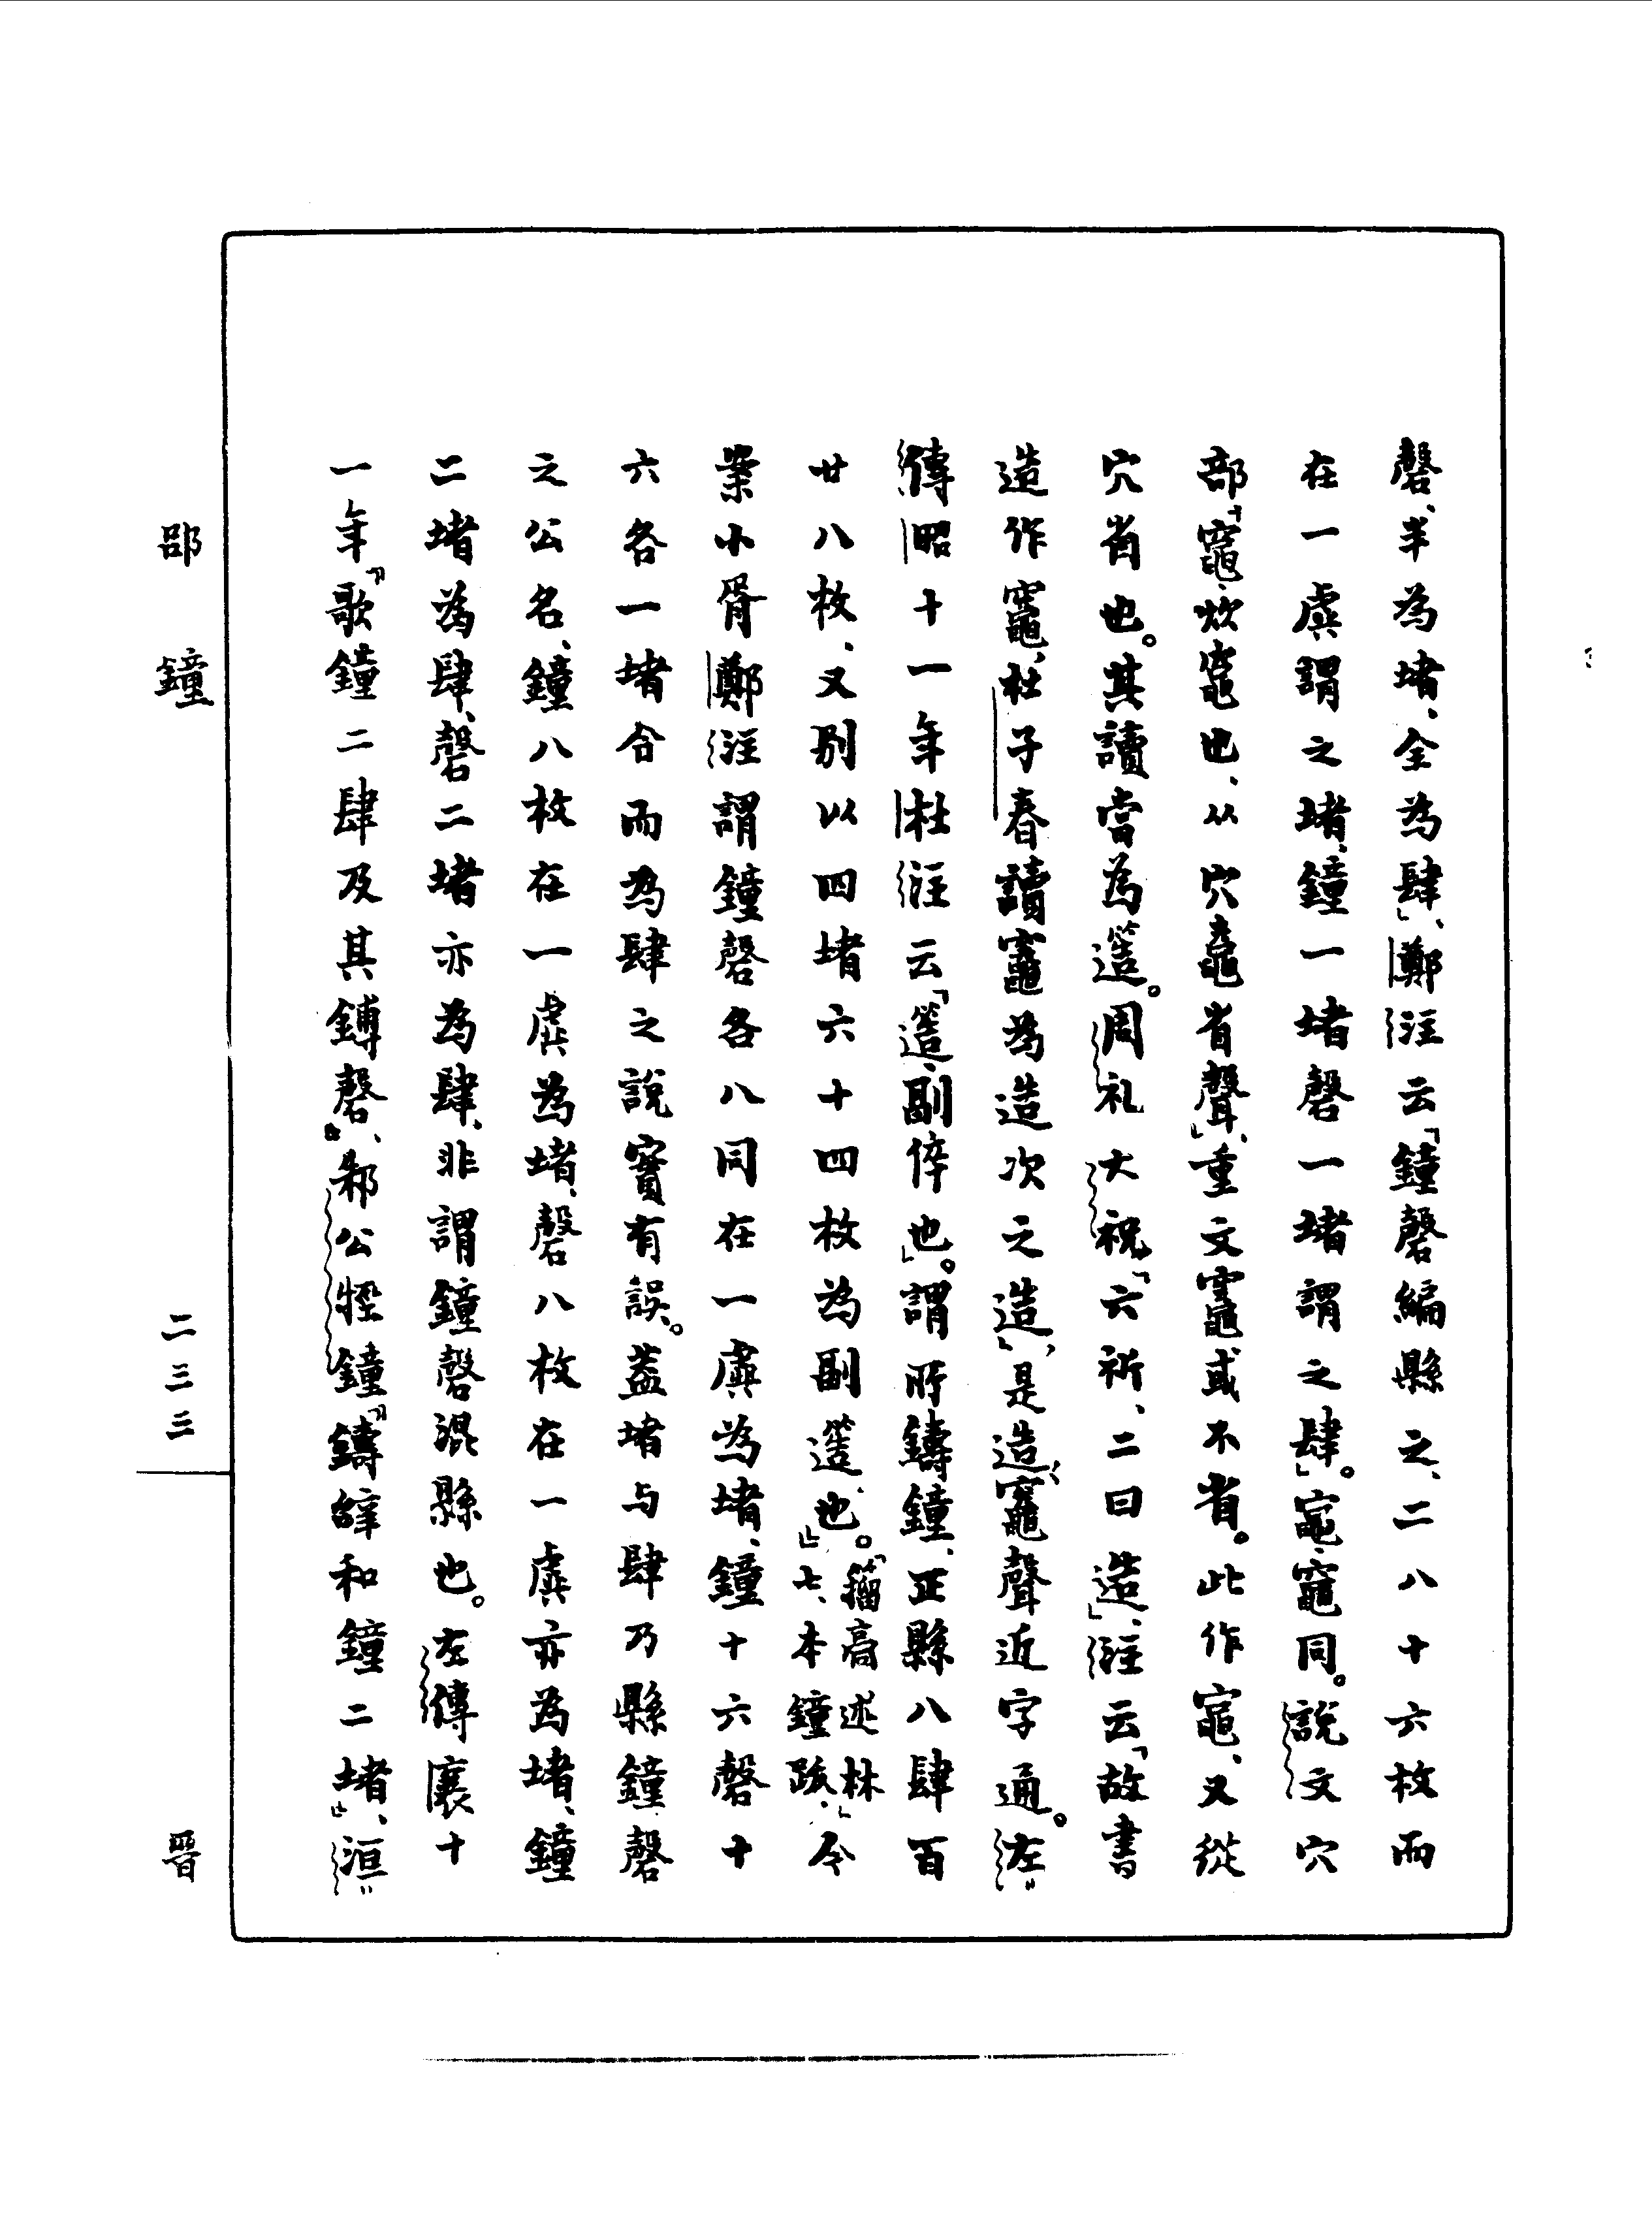 磬、半為堵、全為肆」、鄭注云「鐘磬編縣之、二八十六枚而
在一虡謂之堵、鐘一堵磬一堵謂之肆」。竈竈同。說文穴
部「竈、炊竈也、从穴鼀省聲」、重文竈或不省。此作竈、又從
穴省也。其讀當為簉。周礼大祝「六祈、二曰造」、注云「故書
造作竈、杜子春讀竈為造次之造」、是造、竈聲近字通。左
傳昭十一年杜注云「簉、副倅也」。謂所鑄鐘、正縣八肆百
廿八枚、又別以四堵六十四枚為副簉也。」「籀高述林
七、本鐘跋」今
案小胥鄭注謂鐘磬各八同在一虡為堵、鐘十六磬十
六各一堵合而為肆之說實有誤。蓋堵与肆乃縣鐘磬
之公名、鐘八枚在一虡為堵、磬八枚在一虡亦為堵、鐘
二堵為肆、磬二堵亦為肆、非謂鐘磬混縣也。左傳襄十
一年「歌鐘二肆及其鎛磬」、邾公牼鐘「鑄辝和鐘二堵」、洹
邵鐘
二三三
晉